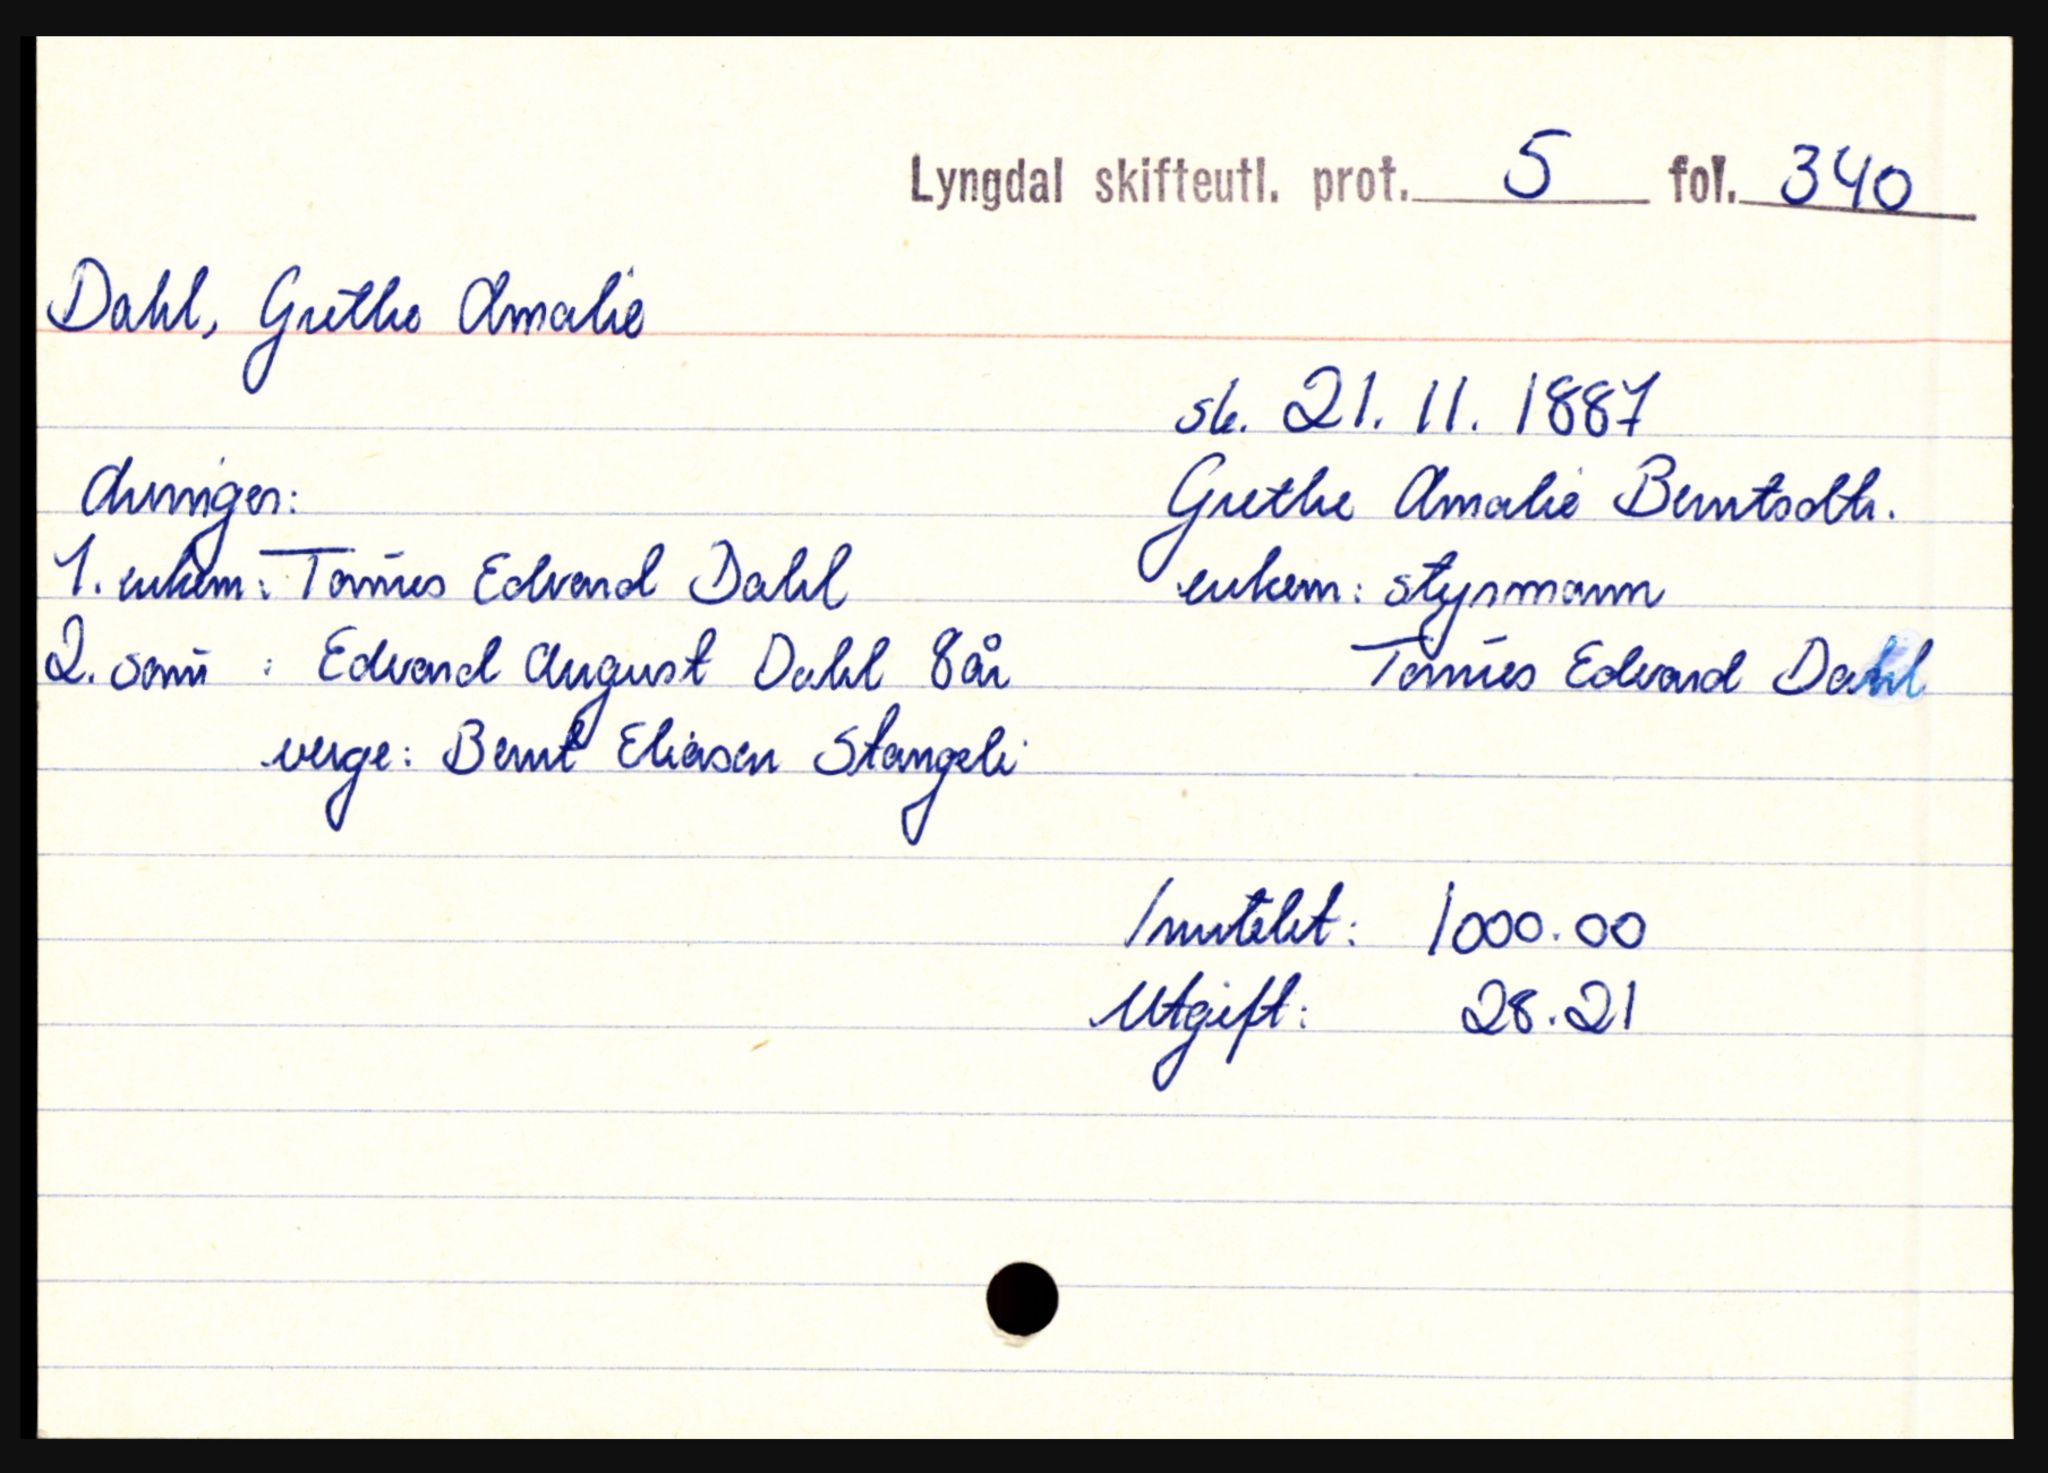 Lyngdal skifteutl. prot. 5 fol. 340
Dahl, Grethe Amalie
sk. 21. 11. 1887
Arvinger:
Grethe Amalie Berntsdtr.
1. enkem: Tønnes Edvard Dahl
enkem: styrmann
2. sønn : Edvard August Dahl 8 år
Tønnes Edvard Dahl
verge: Bernt Eliasen Stangeli
Inntekt: 1000.00
Utgift: 28.21